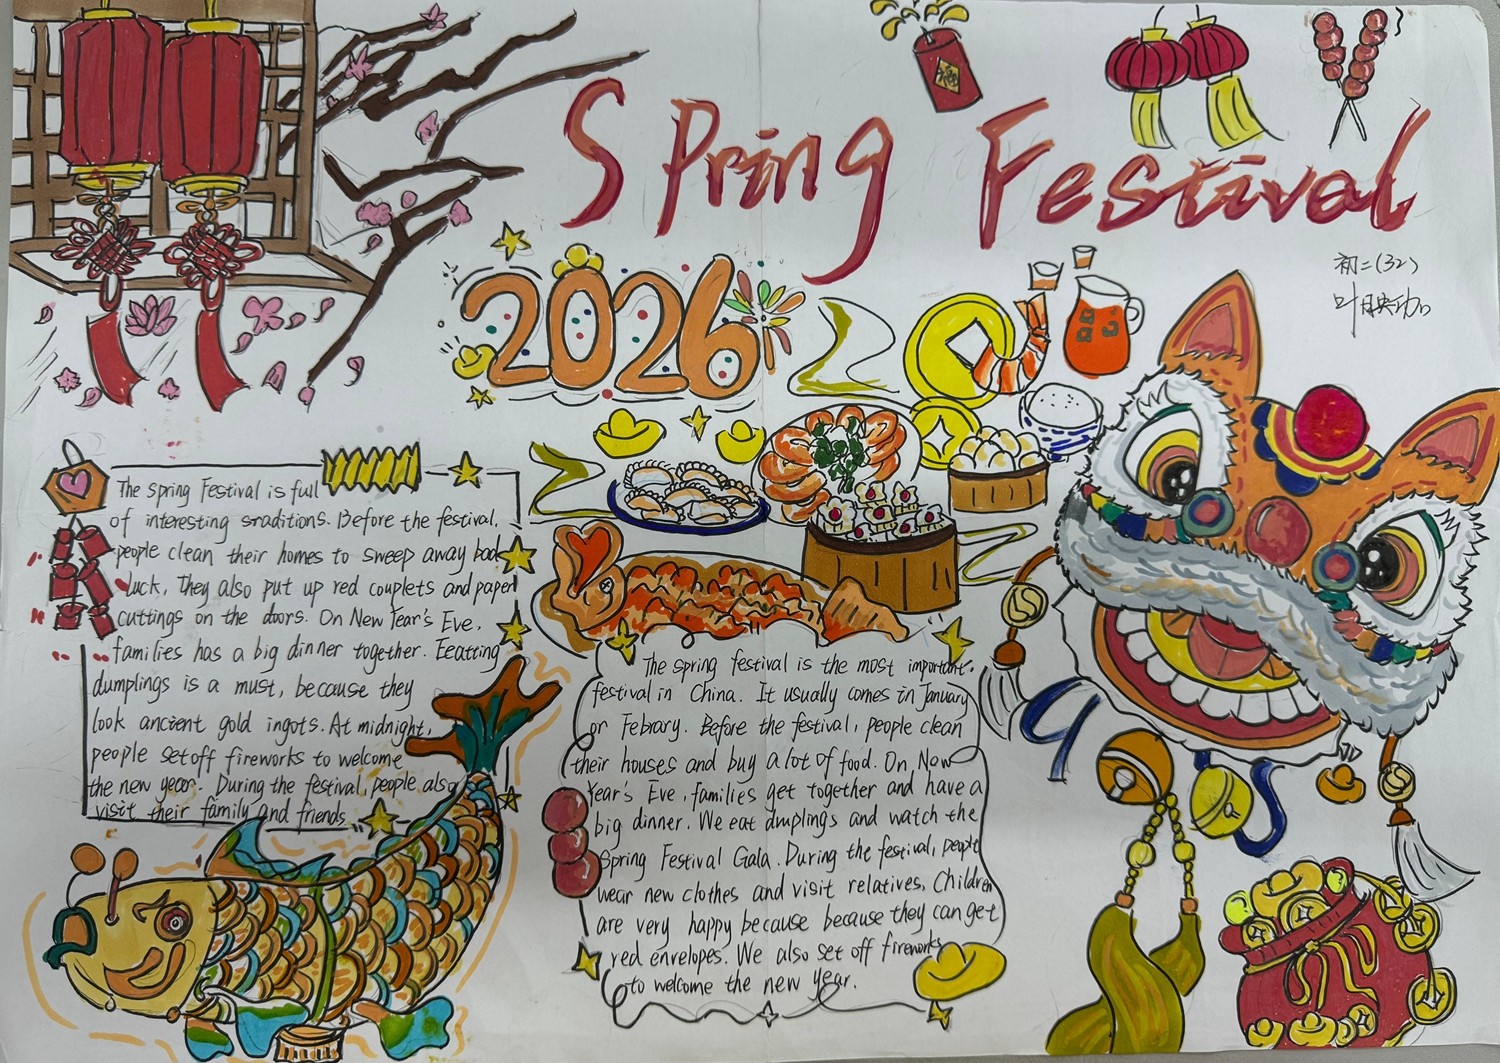 Spring Festival
初二(32)
2026
The spring Festival is full
of interesting sraditions. Before the festival,
people clean their homes to sweep away bad
luck, They also put up red couplets and paper
cuttings on the doors. On New Year's Eve,
families has a big dinner together. Eeatting
dumplings is a must, because they
look ancient gold ingots. At midnight,
people set off fireworks to welcome
the new year. During the festival, people also
visit their family and friends
The spring festival is the most important.
festival in China. It usually comes in January
or Febrary. Before the festival, people clean
their houses and buy a lot of food. On New
Year's Eve, families get together and have a
big dinner. We eat dmplings and watch the
Spring Festival Gala. During the festival, people
wear new clothes and visit relatives, Children
are very happy because because they can get
red envelopes. We also set off fireworks
to welcome the new year.